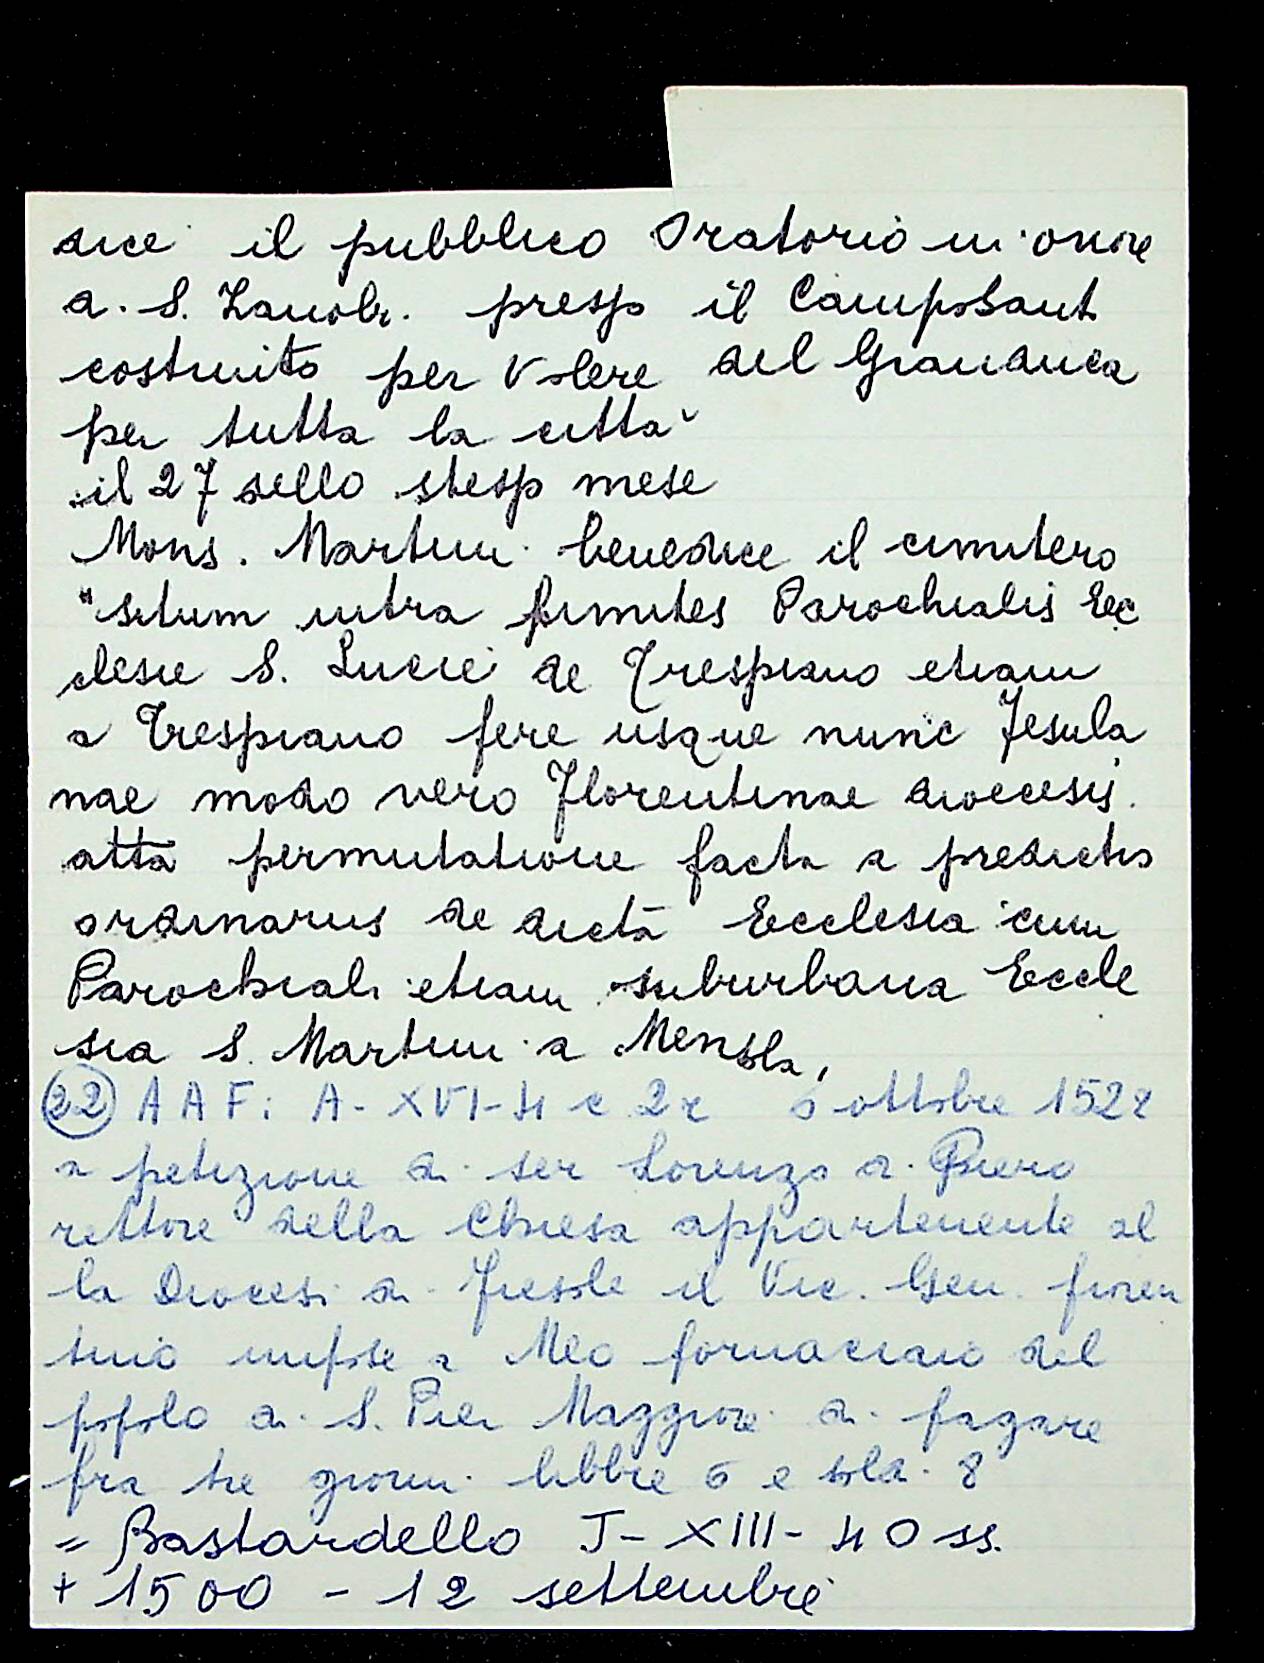 dice il pubblico Oratorio in onore
di S. Zanobi presso il Camposant
costruito per volere del Granduca
per tutta la città
il 27 dello stesso mese
Mons. Martini benedice il cimitero
"situm intra fimites Parochialis Ec
clesie S. Lucie de Trespiano etiam
a Trespiano fere usque nunc Fesula
nae modo vero Florentinae diocesis.
atta permutatione facta a predictis
ordinariis de dicta Ecclesia cum
Parochiali etiam suburbana Eccle
sia S. Martini a Mensola,
(22) AAF: A-XVI-41 c 2r 6 ottobre 1528
a petizione di ser Lorenzo di Piero
rettore della Chiesa appartenente al
la Diocesi di Fiesole il Vic. Gen. fioren
tino impose a Meo fornaciaio del
popolo di S. Pier Maggiore di pagare
fra tre giorni libbre 6 e soldi 8
= Bastardello J-XIII-40 ss.
+ 1500 - 12 settembre